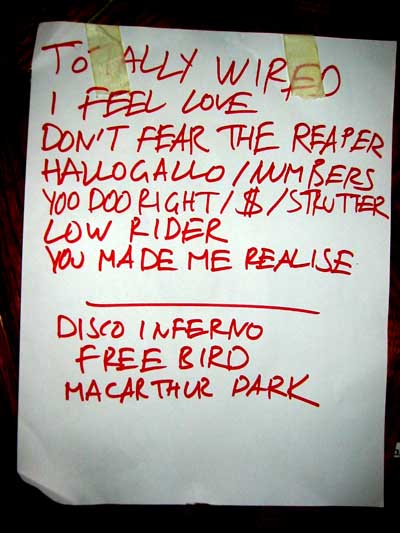 TOTALLY WIRED
I FEEL LOVE
DON'T FEAR THE REAPER
HALLOGALLO/NUMBERS
YOO DOO RIGHT/$/STRUTTER
LOW RIDER
YOU MADE ME REALISE
DISCO INFERNO
FREE BIRD
MACARTHUR PARK